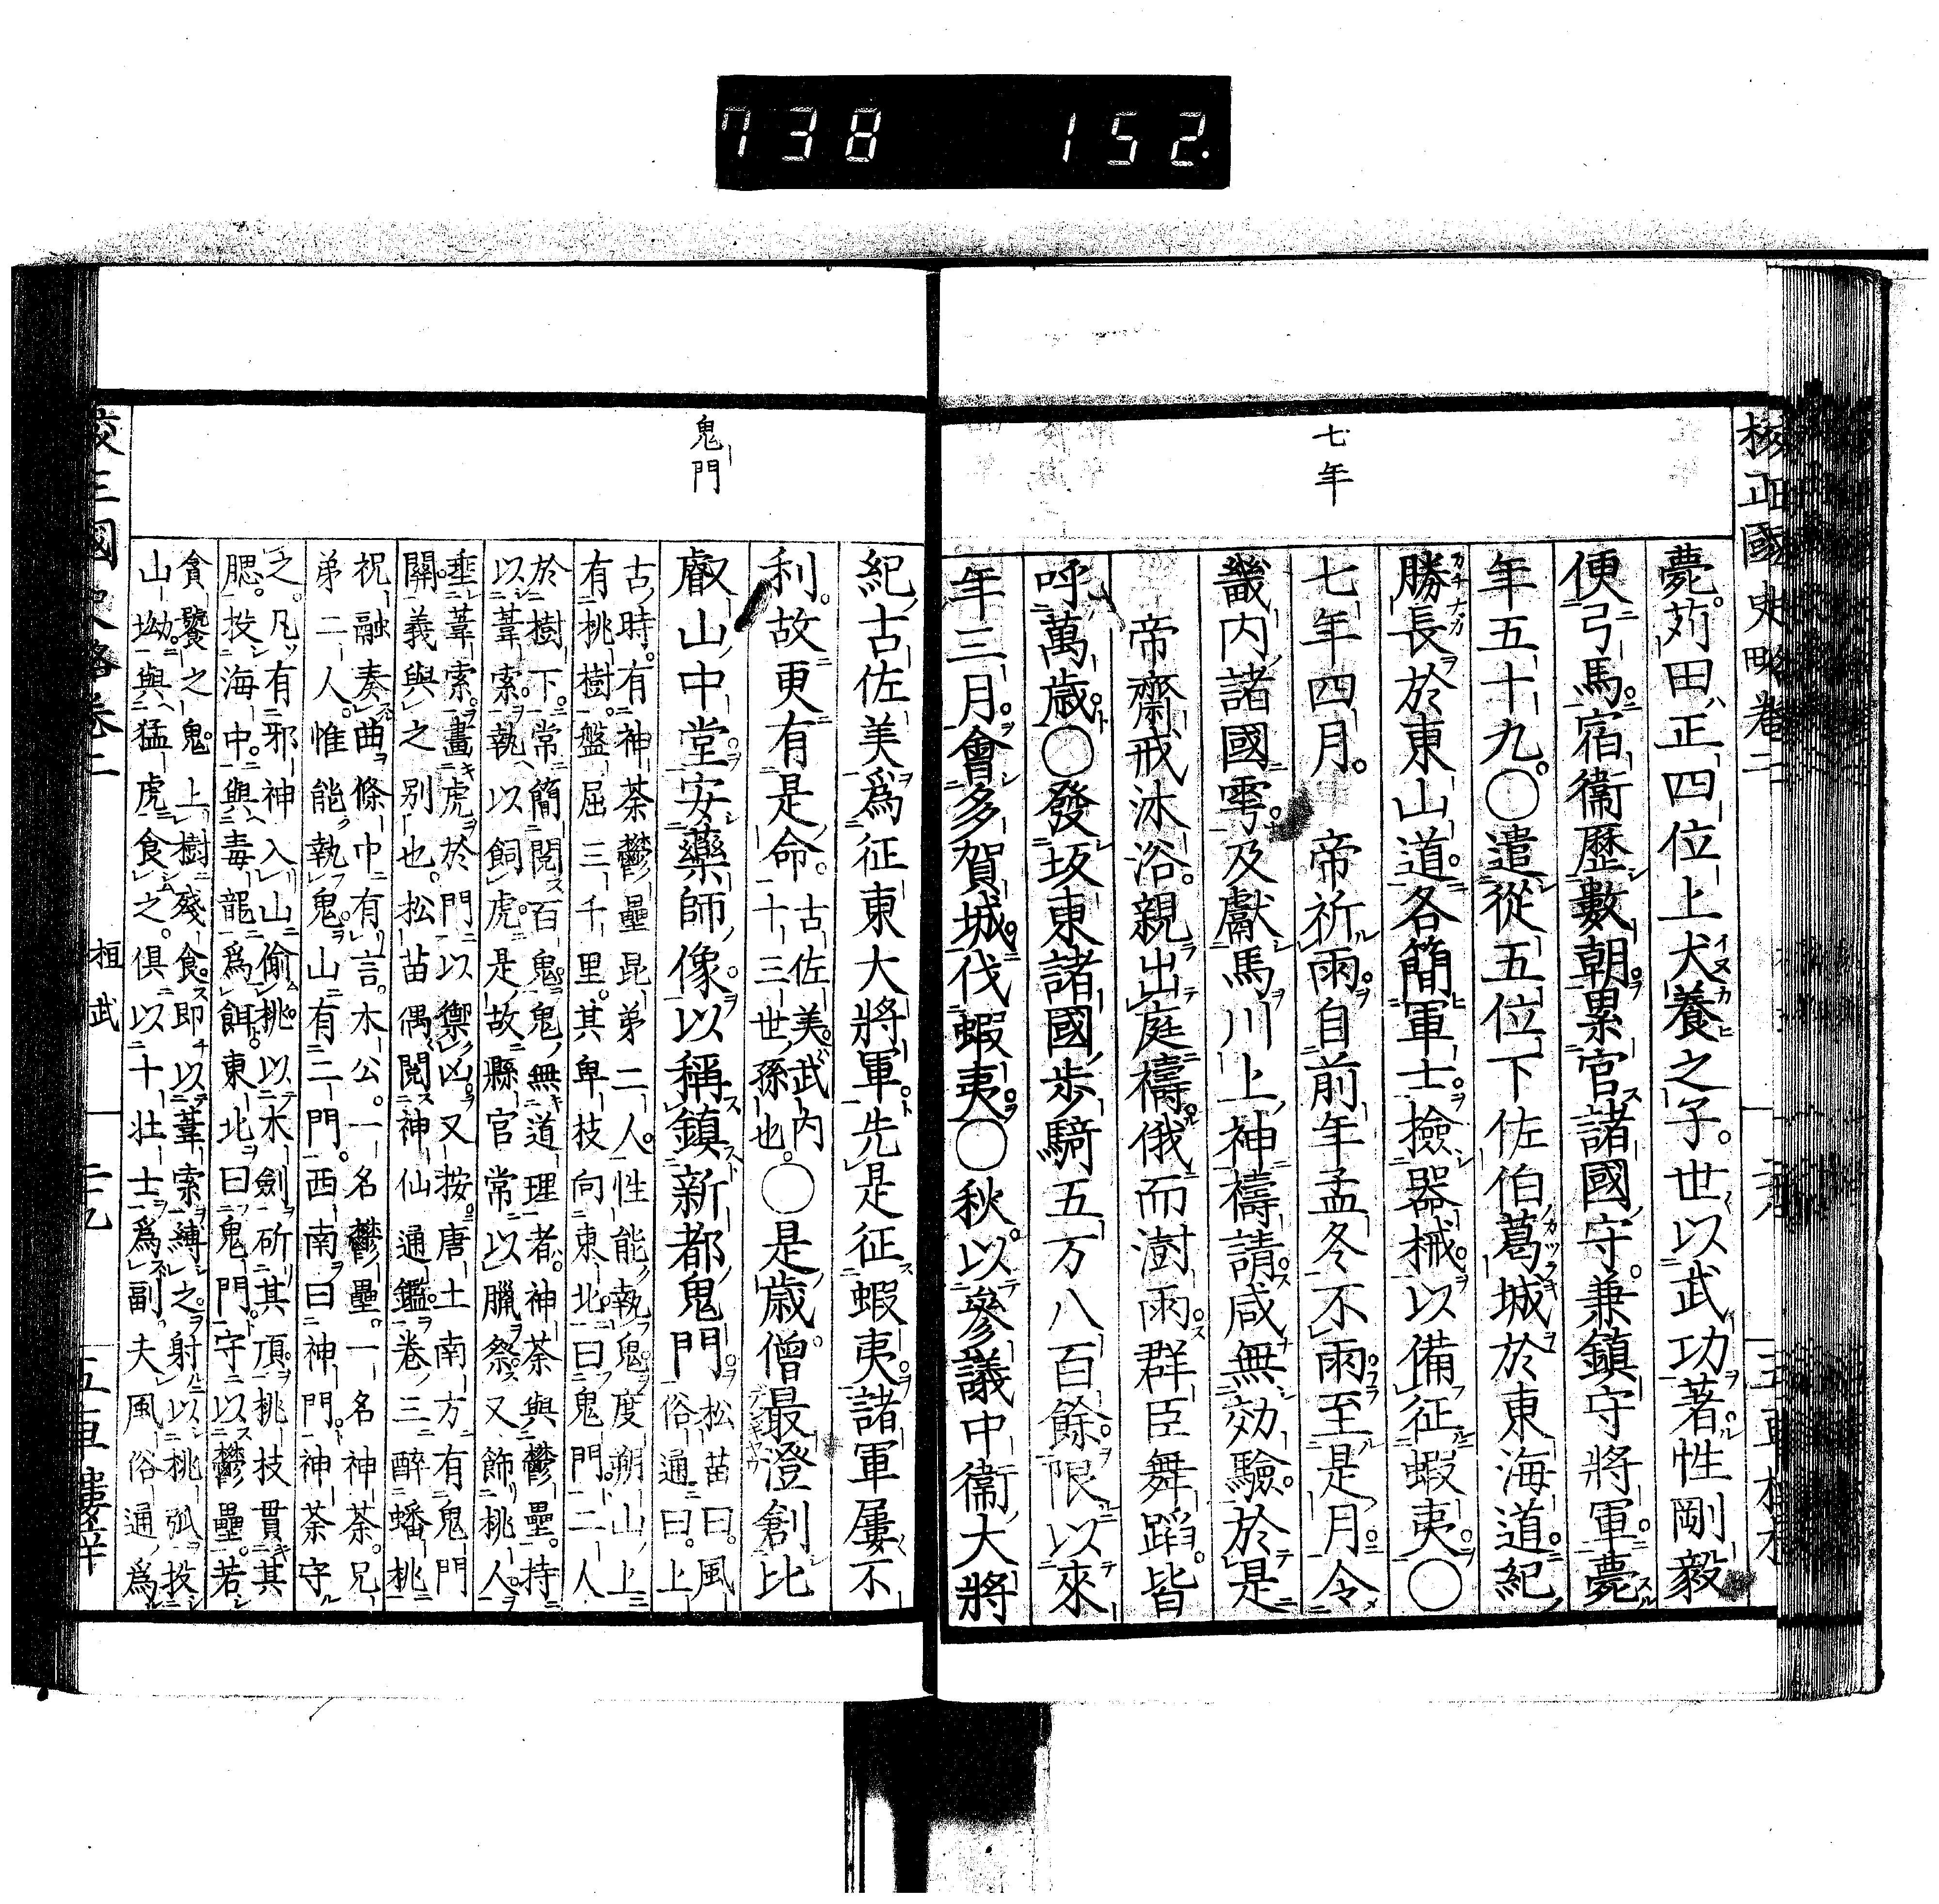 738 152.
校正國史略卷二
七年
薨。苅田、正四位上犬養之子。世以武功著。性剛毅
便弓馬。宿衞歷數朝。累官諸國守。兼鎮守將軍。薨
年五十九。〇遣從五位下佐伯葛城於東海道。紀
勝長於東山道。各簡軍士。撿器械。以備征蝦夷。〇
七年四月。 帝祈雨。自前年孟冬不雨。至是月。令
畿內諸國雩。及獻馬川上神禱請。咸無効驗。於是
帝齋戒沐浴。親出庭禱。俄而澍雨。群臣舞蹈。皆
呼萬歲。〇發坂東諸國步騎五万八百餘。限以來
年三月。會多賀城。伐蝦夷。〇秋。以參議中衞大將
鬼門
紀古佐美爲征東大將軍。先是征蝦夷。諸軍屢不
利。故更有是命。古佐美。武內
十三世孫也。〇是歲。僧最澄創比
叡山中堂。安藥師像。以稱鎮新都鬼門。松苗曰。風
俗通曰。上
古時。有神荼鬱壘昆弟二人。性能執鬼。度朔山上
有桃樹。盤屈三千里。其卑枝向東北。曰鬼門。二人
於樹下。常簡閱百鬼。鬼無道理者。神荼與鬱壘。持
以葦索。執以飼虎。是故縣官常以臘祭。又飾桃人。
垂葦索。畫虎於門。以禦凶。又按唐土南方有鬼門
關。義與之別也。松苗偶閱神仙通鑑。卷三。醉蟠桃
祝融奏曲條中有言。木公。一名鬱壘。一名神荼。兄
弟二人。惟能執鬼。山有二門。西南曰神門。神荼守
之。凡有邪神入山偷桃。以木劍斫其頂。桃枝貫其
腮。投海中。與毒龍爲餌。東北曰鬼門。守以鬱壘。若
貪饕之鬼。上樹殘食。卽以葦索縛之。射以桃弧。投
山坳。與猛虎食之。俱以十壯士爲副。夫風俗通爲
桓武